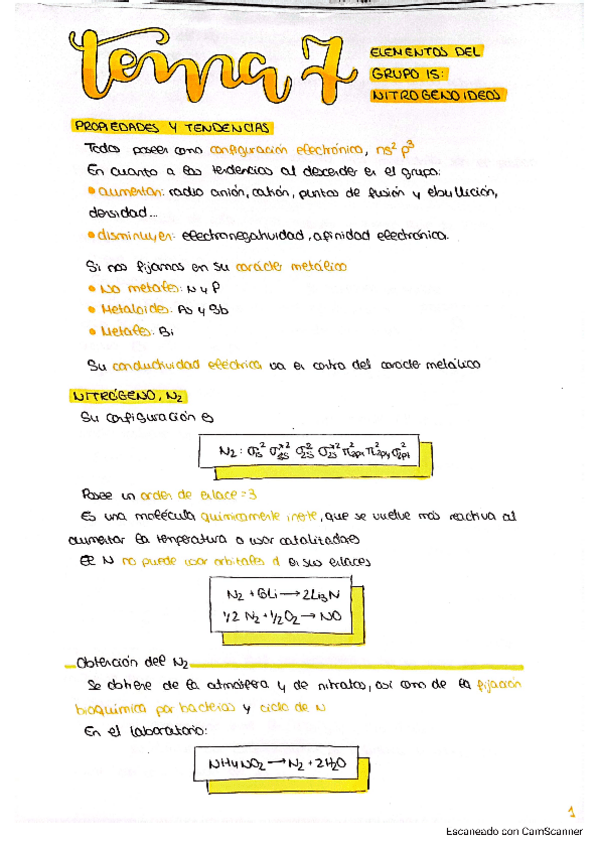 tema 7
ELEMENTOS DEL
GRUPO 15:
NITROGENOIDEOS
PROPIEDADES Y TENDENCIAS
Todos poseen como configuración electrónica, ns² p³
En cuanto a las tendencias al descender en el grupo:
• aumentan: radio anión, catión, puntos de fusión y ebullición,
densidad...
• disminuyen: electronegatividad, afinidad electrónica.
Si nos fijamos en su carácter metálico
• No metales: N y P
• Metaloides: As y Sb
• Metales: Bi
Su conductividad eléctrica va en contra del caracter metálico
NITRÓGENO, N₂
Su configuración es
N₂: σ1s² σ*2s² σ2s² σ2s*² π2px² π2py² σ2pz²
Posee un orden de enlace = 3
Es una molécula químicamente inerte, que se vuelve más reactiva al
aumentar la temperatura o usar catalizadores
El N no puede usar orbitales d en sus enlaces
N₂ + 6Li → 2Li₃N
1/2 N₂ + 1/2 O₂ → NO
Obtención del N₂
Se obtiene de la atmósfera y de nitratos, así como de la fijación
bioquímica por bacterias y ciclo de N
En el laboratorio:
NH4NO₂ → N₂ + 2H₂O
1
Escaneado con CamScanner